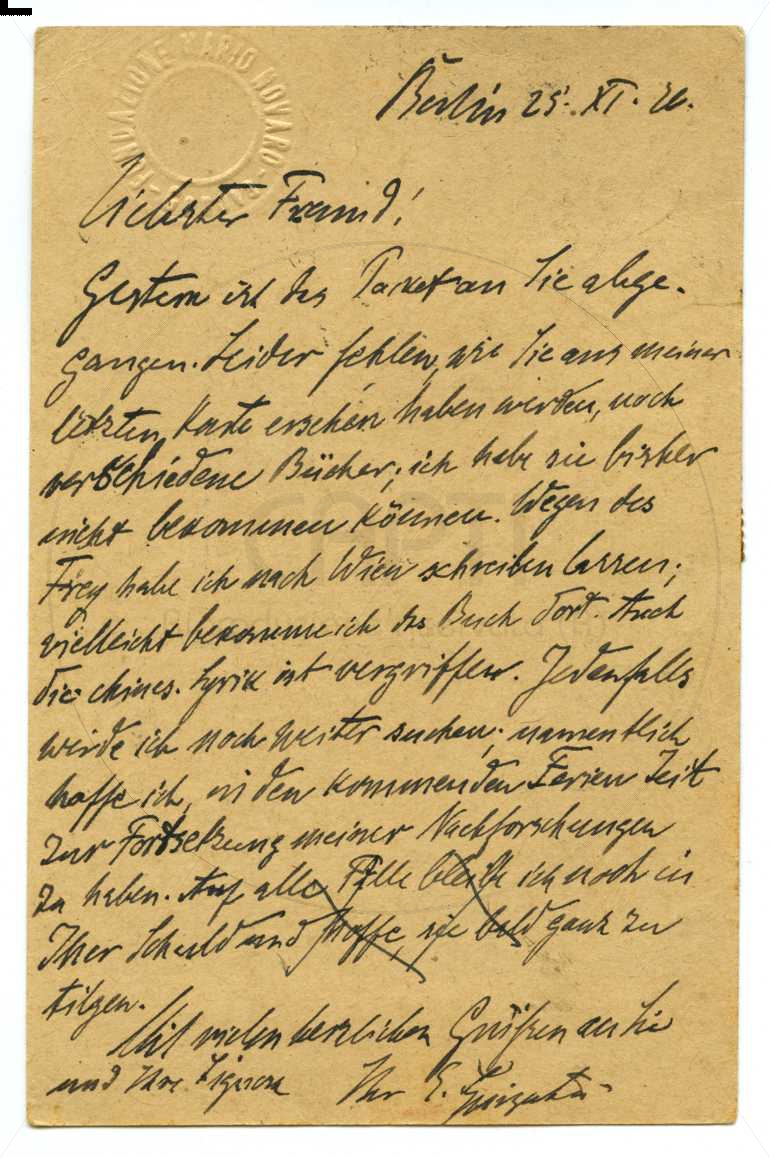 FONDAZIONE MARIO NOVARO
Berlin 25. XI. 20.
Liebster Freund!
Gestern ist das Packet an Sie abge-
gangen. Leider fehlen, wie Sie aus meiner
letzten Karte ersehen haben werden, noch
verschiedene Bücher; ich habe sie bisher
nicht bekommen können. Wegen des
Frey habe ich nach Wien schreiben lassen;
vielleicht bekomme ich das Buch dort. Auch
die chines. Lyrik ist vergriffen. Jedenfalls
werde ich noch weiter suchen; namentlich
hoffe ich, in den kommenden Ferien Zeit
zur Fortsetzung meiner Nachforschungen
zu haben. Auf alle Fälle bleibe ich noch in
Ihrer Schuld und hoffe, sie bald ganz zu
tilgen.
Mit vielen herzlichen Grüßen an Sie
und Ihre Signora Ihr E.